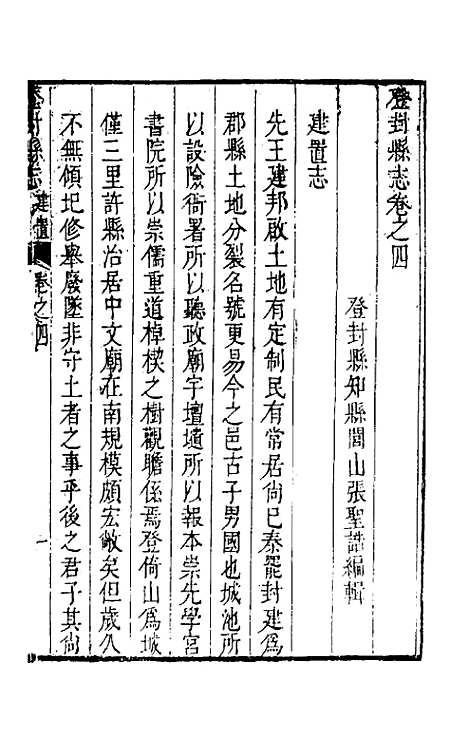 登封縣志卷之四
登封縣知縣閭山張聖誥編輯
建置志
先王建邦啟土地有定制民有常居尚巳秦罷封建爲
郡縣土地分裂名號更易今之邑古子男國也城池所
以設險衙署所以聽政廟宇壇壝所以報本崇先學宮
書院所以崇儒重道棹楔之樹觀瞻係焉登倚山爲城
僅三里許縣治居中文廟在南規模頗宏敞矣但歲久
不無傾圮修舉廢墜非守土者之事乎後之君子其尚
登封縣志 建置 卷之四 一